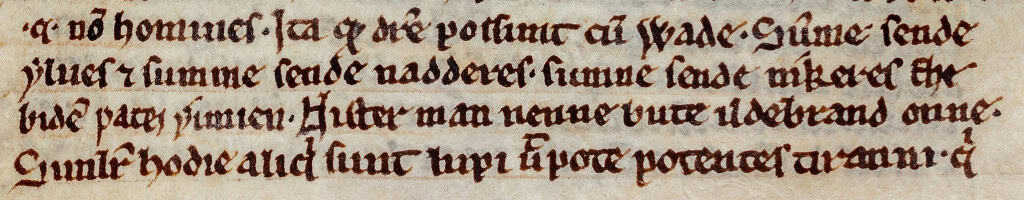 ·q· nō homines· Ita qď dr̄e possunt cū wade· Sūme sende
ylues ⁊ summe sende nadderes· sumne sende nikeres the
bidē patez ẏmıen· Nister man nenne bute ildebrand onne·
Simil̄r hodie aliqͥ sunt lupi ūpote potentes tiranni· qͥ